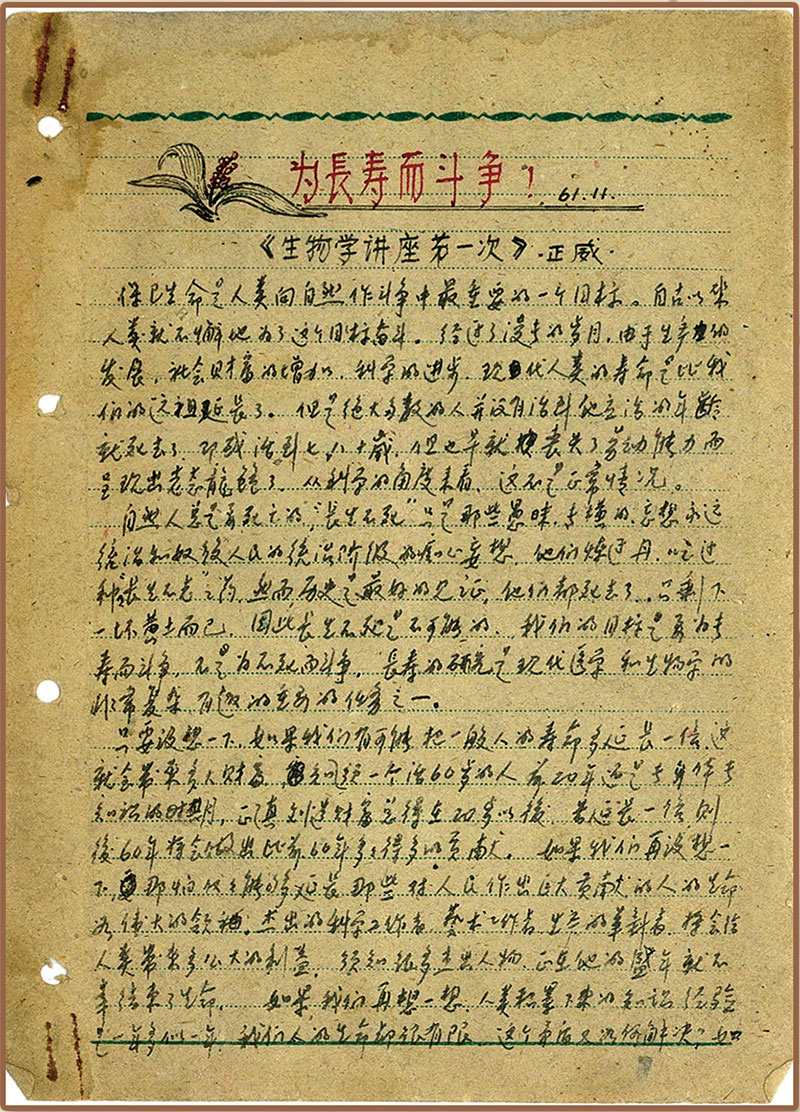 为長寿而斗争！ 61.11.
《生物学讲座第一次》·正威·
保卫生命是人类向自然作斗争中最重要的一个目标。自古以来
人类就不懈地为了这个目标奋斗。经过了漫长的岁月，由于生产力的
发展，社会财富的增加，科学的进步，现代人类的寿命是比我
们的远祖延長了。但是绝大多数的人并没有活到他应活的年龄
就死去了，即或活到七八十歳，但也早就丧失了劳动能力而
呈现出老态龍鍾了，从科学的角度来看，这不是正常情况。
自然人总是要死亡的，“長生不死”只是那些愚昧，妄想永远
统治和奴役人民的统治阶级的痴心妄想，他们炼过丹，吃过
种“長生不老”之药，然而，历史是最好的见证，他们都死去了，只剩下
一抔黄土而已，因此長生不死是不可能的，我们的目标是要为長
寿而斗争，不是为不死而斗争，長寿的研究是现代医学和生物学的
非常复杂有趣的重要的任务之一。
只要设想一下，如果我们有可能把一般人的寿命多延長一倍，这
就会带来多大财富，须知一个活60岁的人前20年还是長身体長
知识的时期，正真创造财富总得在20岁以後，若延長一倍则
後60年将会做出比前60年多得多的贡献。如果我们再设想一
下，那怕仅仅能够延長那些对人民作出巨大贡献的人的生命
如伟大的领袖，杰出的科学工作者，藝术工作者，生产的革新者，将会给
人类带来多么大的利益，须知很多杰出人物，正在他的盛年就不
幸结束了生命。如果我们再想一想，人类积累下来的知识经验
是一年多似一年，我们人的生命却很有限，这个矛盾又如何解决？如